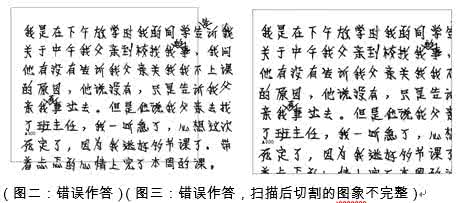 我是在下午放学时我的同学告诉我
关于中午我父亲到校找我的事，我问
他有没有告诉我父亲关我我不上课
的原因，他说没有，只是告诉我父
亲我有事出去。但是他说我父亲去找
了班主任，我一听急了，心想这次
死定了，因为我逃好多节课了。带
着忐忑的心情上完了本周的课。
我是在下午放学时我的同学
关于中午我父亲到校找我的事，
他有没有告诉我父亲关我我不
的原因，他说没有，只是告诉
亲我有事出去。但是他说我父亲
了班主任，我一听急了，心想
死定了，因为我逃好多节课了
着忐忑的心情上完了本周的课
（图二：错误作答）（图三：错误作答，扫描后切割的图象不完整）